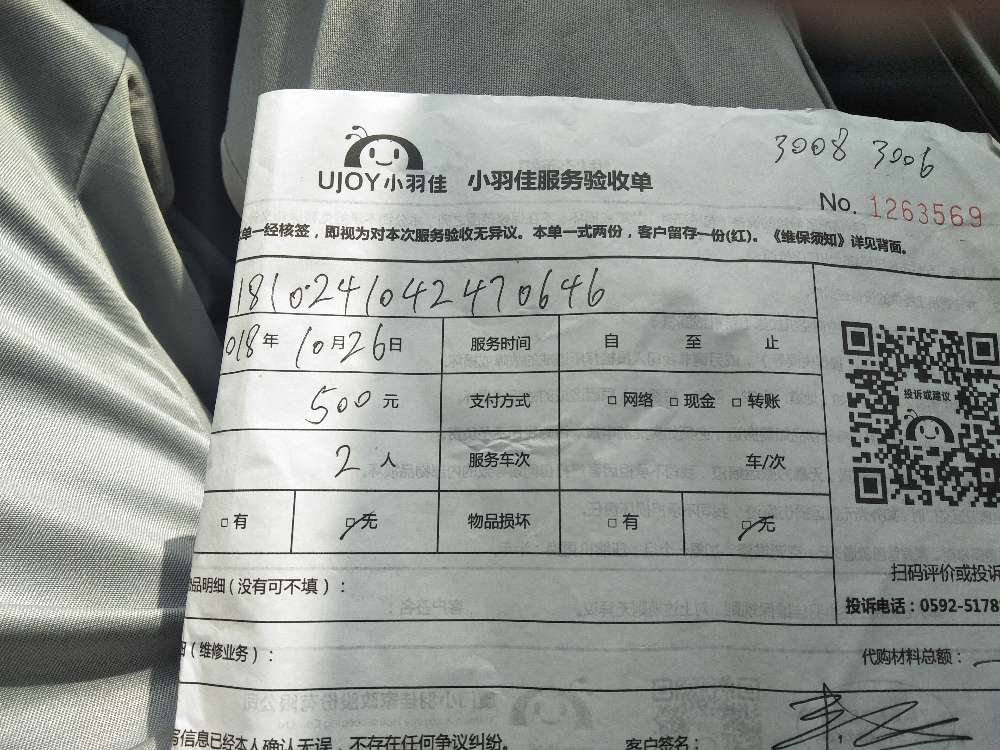 3008 3006
UJOY小羽佳 小羽佳服务验收单
No. 1263569
单一经核签，即视为对本次服务验收无异议。本单一式两份，客户留存一份(红)。《维保须知》详见背面。
181024104247 0646
018年 10月26日 服务时间 自 至 止
500元 支付方式 □网络 □现金 □转账
投诉或建议
2人 服务车次 车/次
□有 □无 物品损坏 □有 □无
扫码评价或投诉
品明细(没有可不填)：
投诉电话：0592-5178
(维修业务)：
代购材料总额：
信息已经本人确认无误，不存在任何争议纠纷。
客户签名：